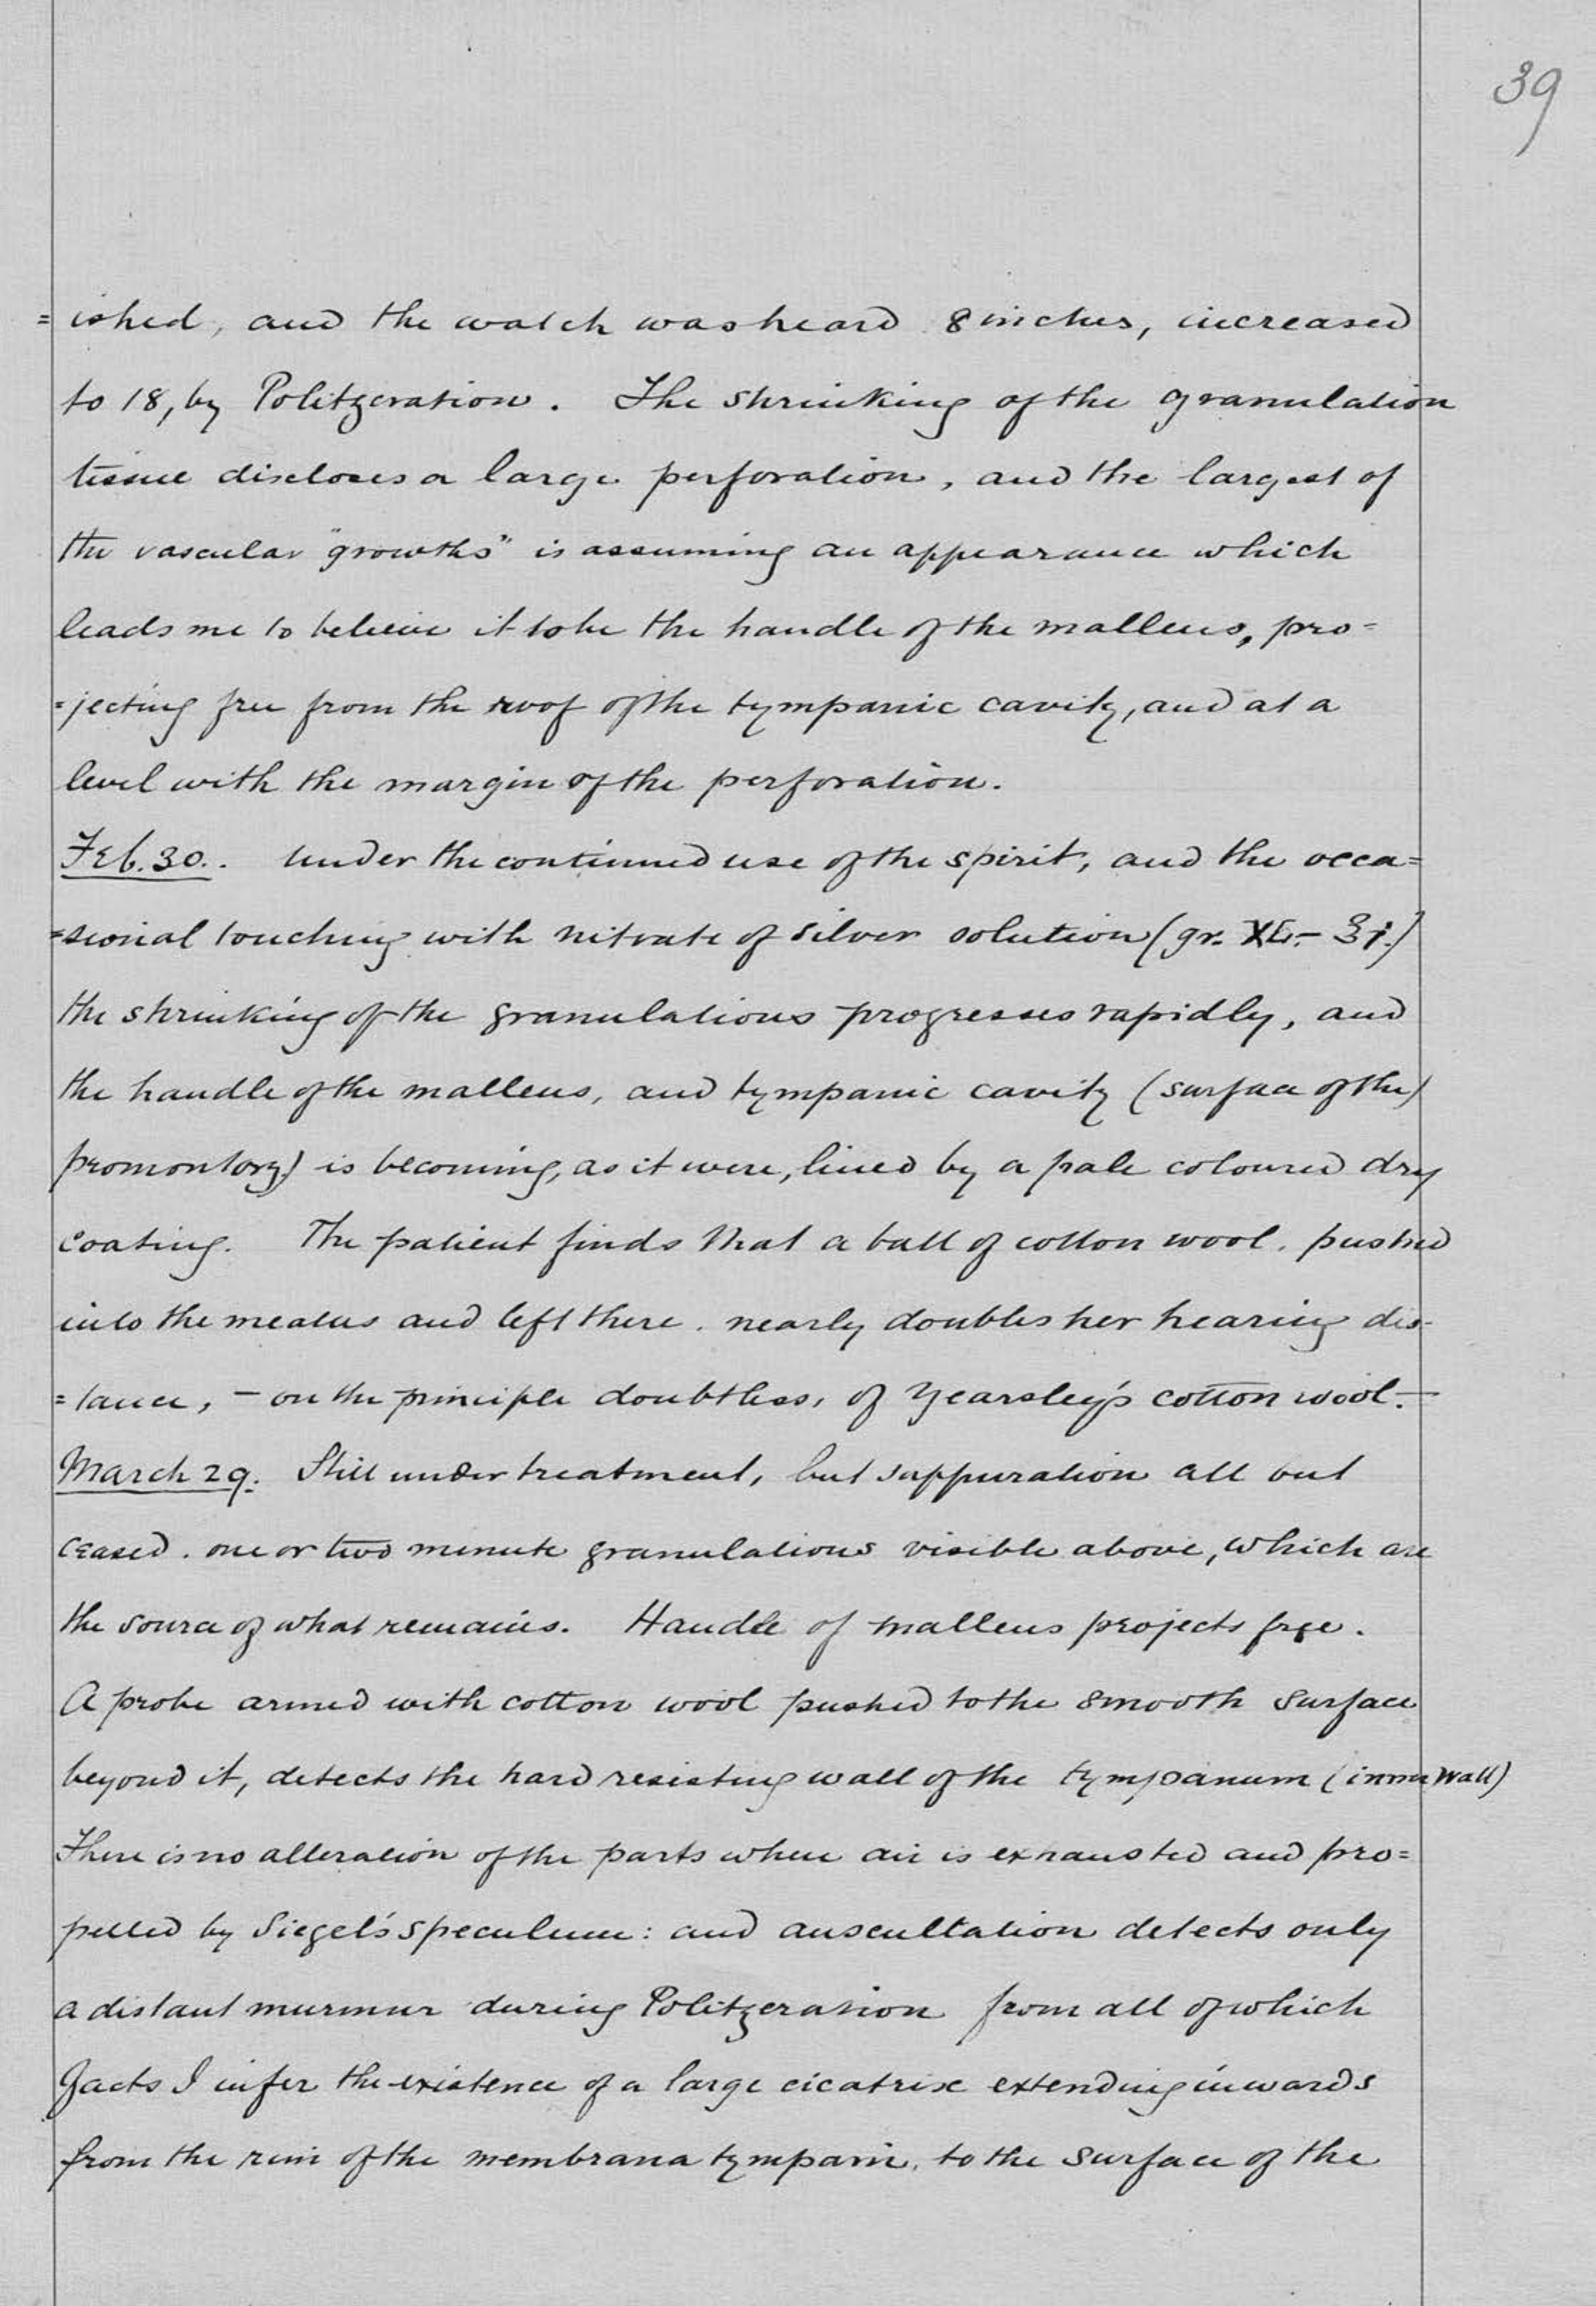 39
=ished, and the watch was heard 8 inches, increased
to 18, by Politzeration. The shrinking of the granulation
tissue discloses a large perforation, and the largest of
the vascular "growths" is assuming an appearance which
leads me to believe it to be the handle of the malleus, pro=
=jecting free from the roof of the tympanic cavity, and at a
level with the margin of the perforation.
Feb. 30. Under the continued use of the spirit, and the occa=
=sional touching with nitrate of silver solution (gr. XL.- ℥j.)
the shrinking of the granulations progresses rapidly, and
the handle of the malleus, and tympanic cavity (surface of the)
promontory) is becoming, as it were, lined by a pale coloured dry
coating. The patient finds that a ball of cotton wool, pushed
into the meatus and left there, nearly doubles her hearing dis-
=tance, - on the principle doubtless, of Yearsley's cotton wool.-
March 29. Still under treatment, but suppuration all but
ceased. one or two minute granulations visible above, which are
the source of what remains. Handle of malleus projects free.
A probe armed with cotton wool pushed to the smooth surface
beyond it, detects the hard resisting wall of the tympanum (inner wall)
There is no alteration of the parts when air is exhausted and pro=
pelled by Siegel's speculum: and auscultation detects only
a distant murmur during Politzeration from all of which
facts I infer the existence of a large cicatrix extending inwards
from the rim of the membrana tympani, to the surface of the